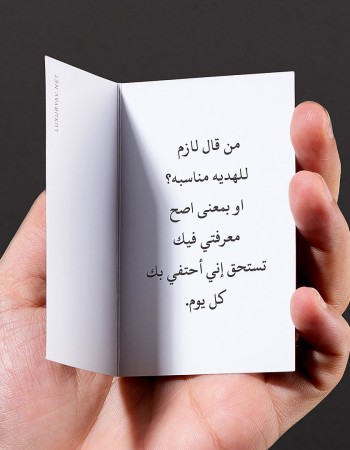 من قال لازم
للهديه مناسبه؟
او بمعنى اصح
معرفتي فيك
تستحق إني أحتفي بك
كل يوم.